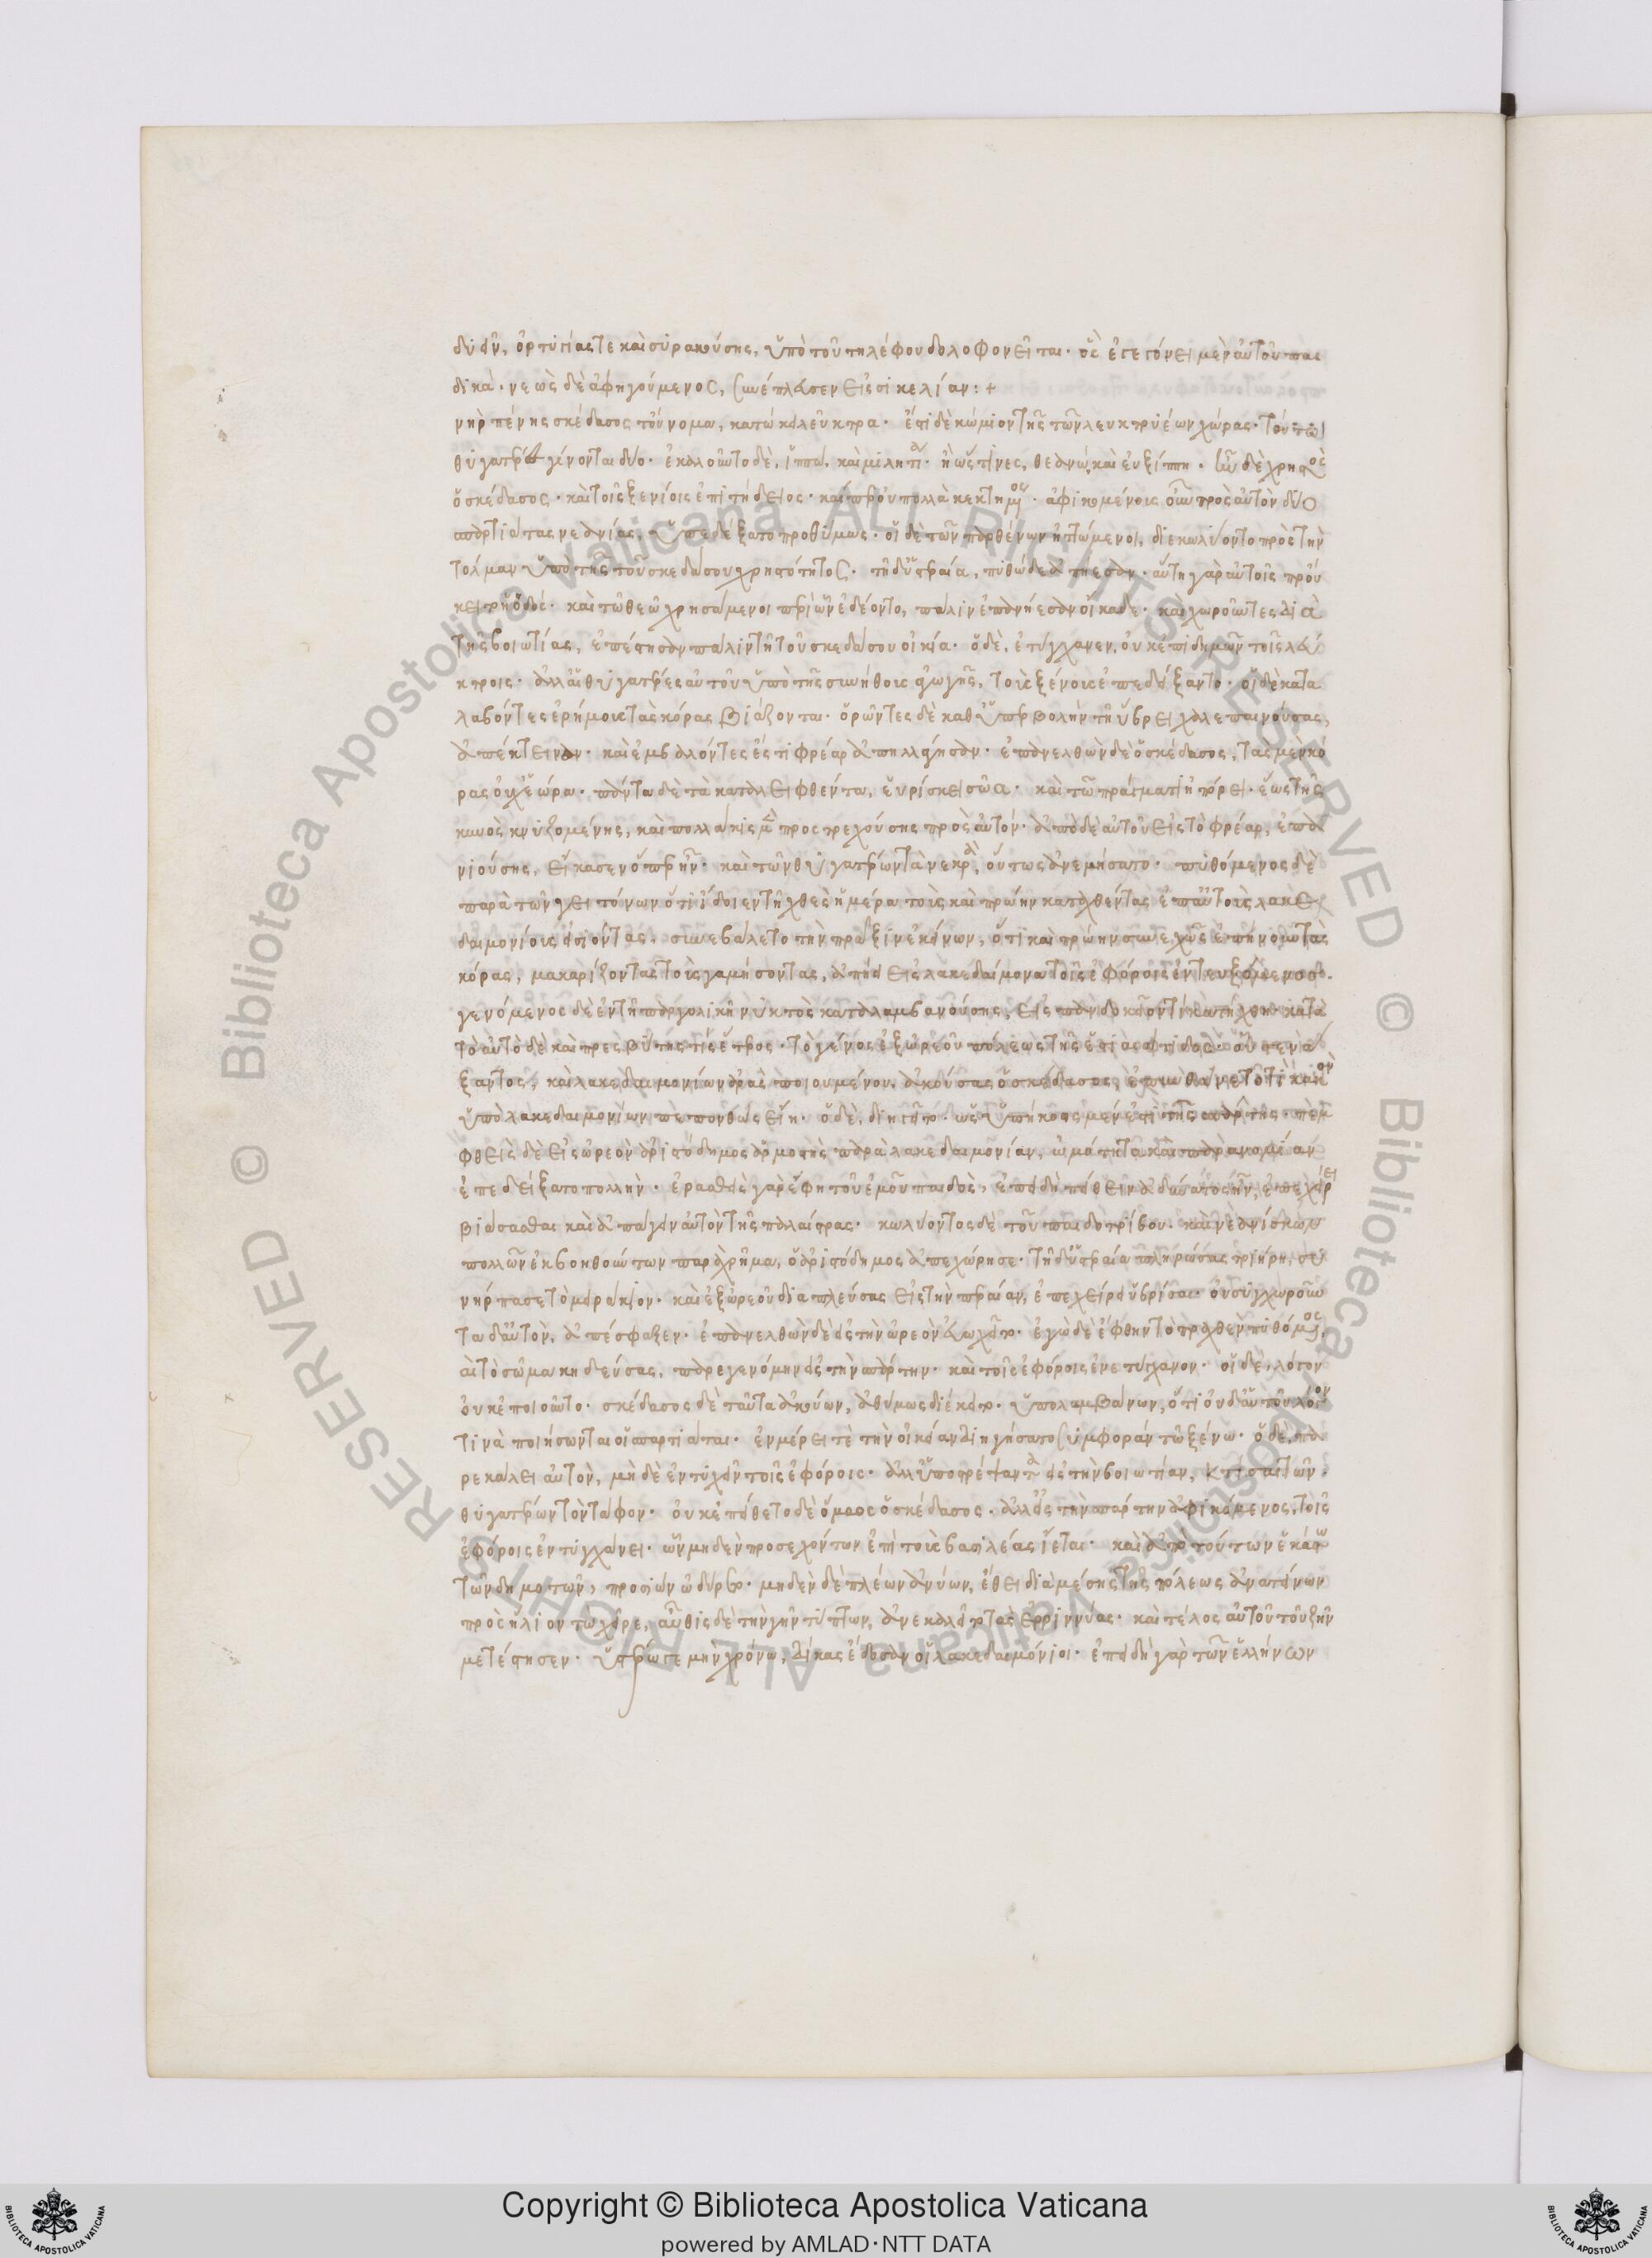 δυεῖν, ὀρτυγίας τε καὶ συρακούσης, ὑπὸ τοῦ τηλέφου δολοφονεῖται· ὃς ἐγεγόνει μὲν αὐτοῦ παι
δικὰ· νεὼς δὲ ἀφηγούμενος, συνέπλευσεν εἰς σικελίαν:+
νὴρ πένης σκέδασος τοὔνομα, κατώκει λεῦκτρα· ἔστι δὲ κώμιον τῆς τῶν λευκτριέων χώρας· τούτῳ
θυγατέρες γίνονται δύο· ἐκαλοῦντο δὲ, ἵππω, καὶ μιλητία· ἢ ὥς τινες, θεανὼ, καὶ εὐξίππη· ἦν δὲ χρηστὸς
ὁ σκέδασος· καὶ τοῖς ξενίοις ἐπιτήδειος· καίπερ οὐ πολλὰ κεκτημένος· ἀφικομένοις οὖν πρὸς αὐτὸν δύο
σπαρτιάτας νεανίας, ὑπεδέξατο προθύμως· οἱ δὲ τῶν παρθένων ἡττώμενοι, διεκωλύοντο πρὸς τὴν
τόλμαν ὑπὸ τῆς τοῦ σκεδάσου χρηστότητος· τῇ δ' ὑστεραίᾳ, πυθώδε ἀπῄεσαν· αὕτη γὰρ αὐτοῖς προὔ
κειτο ἡ ὁδός· καὶ τῷ θεῷ χρησάμενοι περὶ ὧν ἐδέοντο, πάλιν ἐπανῄεσαν οἴκαδε· καὶ χωροῦντες διὰ
τῆς βοιωτίας, ἐπέστησαν πάλιν τῇ τοῦ σκεδάσου οἰκίᾳ· ὁ δὲ, ἐτύγχανεν, οὐκ ἐπιδημῶν τοῖς λεύ
κτροις· ἀλλ' αἱ θυγατέρες αὐτοῦ ὑπὸ τῆς συνήθους ἀγωγῆς, τοὺς ξένους ἐπεδέξαντο· οἱ δὲ κατα
λαβόντες ἐρήμους τὰς κόρας βιάζονται· ὁρῶντες δὲ καθ' ὑπερβολὴν τῇ ὕβρει χαλεπαινούσας,
ἀπέκτειναν· καὶ ἐμβαλόντες ἔς τι φρέαρ ἀπηλλάγησαν· ἐπανελθὼν δὲ ὁ σκέδασος, τὰς μὲν κό
ρας οὐχ ἑώρα· πάντα δὲ τὰ καταλειφθέντα, εὑρίσκει σῶα· καὶ τῷ πράγματι ἠπόρει· ἕως τῆς
κυνὸς κνυζομένης, καὶ πολλάκις μὲν προστρεχούσης πρὸς αὐτόν· ἀπὸ δὲ αὐτοῦ εἰς τὸ φρέαρ, ἐπα
νιούσης, εἴκασεν ὅπερ ἦν· καὶ τῶν θυγατέρων τὰ νεκρὰ, οὕτως ἀνεμήσατο· πυθόμενος δὲ
παρὰ τῶν γειτόνων ὅτι ἴδοιεν τῇ χθὲς ἡμέρᾳ τοὺς καὶ πρῴην καταχθέντας ἐπ' αὐτοὺς λακε
δαιμονίους εἰσιόντας, συνεβάλετο τὴν πρᾶξιν ἐκείνων, ὅτι καὶ πρῴην συνεχῶς ἐπῄνουν τὰς
κόρας, μακαρίζοντας τοὺς γαμήσοντας, ἀπῄει εἰς λακεδαίμονα τοῖς ἐφόροις ἐντευξόμενος·
γενόμενος δὲ ἐν τῇ ἀργολικῇ νυκτὸς καταλαμβανούσης, εἰς πανδοκεῖόν τι κατήχθη· κατὰ
τὸ αὐτὸ δὲ καὶ πρεσβύτης τις ἕτερος· τὸ γένος ἐξ ὠρεοῦ πόλεως τῆς ἑστιαιώτιδος· οὗ στενά
ξαντος, καὶ λακεδαιμονίων ἀρὰς ποιουμένου, ἀκούσας ὁ σκέδασος, ἐπυνθάνετο τί κακὸν
ὑπὸ λακεδαιμονίων πεπονθὼς εἴη· ὁ δὲ, διηγεῖτο· ὡς ὑπήκοος μέν ἐστι τῆς σπάρτης· πεμ
φθεὶς δὲ εἰς ὠρεὸν ἀριστόδημος ἁρμοστὴς παρὰ λακεδαιμονίων, ὠμότητα καὶ παρανομίαν
ἐπεδείξατο πολλήν· ἐρασθεὶς γὰρ ἔφη τοῦ ἐμοῦ παιδὸς, ἐπειδὴ πείθειν ἀδύνατος ἦν, ἐπεχείρει
βιάσασθαι καὶ ἀπάγειν αὐτὸν τῆς παλαίστρας· κωλύοντος δὲ τοῦ παιδοτρίβου· καὶ νεανίσκων
πολλῶν ἐκβοηθούντων παραχρῆμα, ὁ ἀριστόδημος ἀπεχώρησε· τῇ δ' ὑστεραίᾳ πληρώσας τριήρη, συ
νήρπασε τὸ μειράκιον· καὶ ἐξ ὠρεοῦ διαπλεύσας εἰς τὴν περαίαν, ἐπεχείρει ὑβρίσαι· οὐ συγχωροῦν
τα δ' αὐτὸν, ἀπέσφαξεν· ἐπανελθὼν δὲ εἰς τὴν ὠρεὸν εὐωχεῖτο· ἐγὼ δὲ ἔφη τὸ πραχθὲν πυθόμενος,
καὶ τὸ σῶμα κηδεύσας, παρεγενόμην εἰς τὴν σπάρτην· καὶ τοῖς ἐφόροις ἐνετύγχανον· οἱ δὲ, λόγον
οὐκ ἐποιοῦντο· σκέδασος δὲ ταῦτα ἀκούων, ἀθύμως διέκειτο· ὑπολαμβάνων, ὅτι οὐδ' αὐτοῦ λόγον
τινὰ ποιήσονται οἱ σπαρτιᾶται· ἐν μέρει τὲ τὴν οἰκείαν διηγήσατο συμφορὰν τῷ ξένῳ· ὁ δὲ, πα
ρεκάλει αὐτὸν, μὴ δὲ ἐντυχεῖν τοῖς ἐφόροις· ἀλλ' ὑποστρέψαντα εἰς τὴν βοιωτίαν, κτίσαι τῶν
θυγατέρων τὸν τάφον· οὐκ ἐπείθετο δὲ ὅμως ὁ σκέδασος· ἀλλ' εἰς τὴν σπάρτην ἀφικόμενος, τοῖς
ἐφόροις ἐντυγχάνει· ὧν μηδὲν προσεχόντων ἐπὶ τοὺς βασιλέας ἵεται· καὶ ἀπὸ τούτων ἑκάστῳ
τῶν δημοτῶν, προσιὼν ὠδύρετο· μηδὲν δὲ πλέον ἀνύων, ἔθει διὰ μέσης τῆς πόλεως ἀνατείνων
πρὸς ἥλιον τὼ χεῖρε, αὖθις δὲ τὴν γῆν τύπτων, ἀνεκαλεῖτο τὰς ἐρριννύας· καὶ τέλος αὐτοῦ τοῦ ζῆν
μετέστησεν· ὑστέρῳ γε μὴν χρόνῳ, δίκας ἔδοσαν οἱ λακεδαιμόνιοι· ἐπειδὴ γὰρ τῶν ἑλλήνων
Copyright © Biblioteca Apostolica Vaticana
powered by AMLAD·NTT DATA